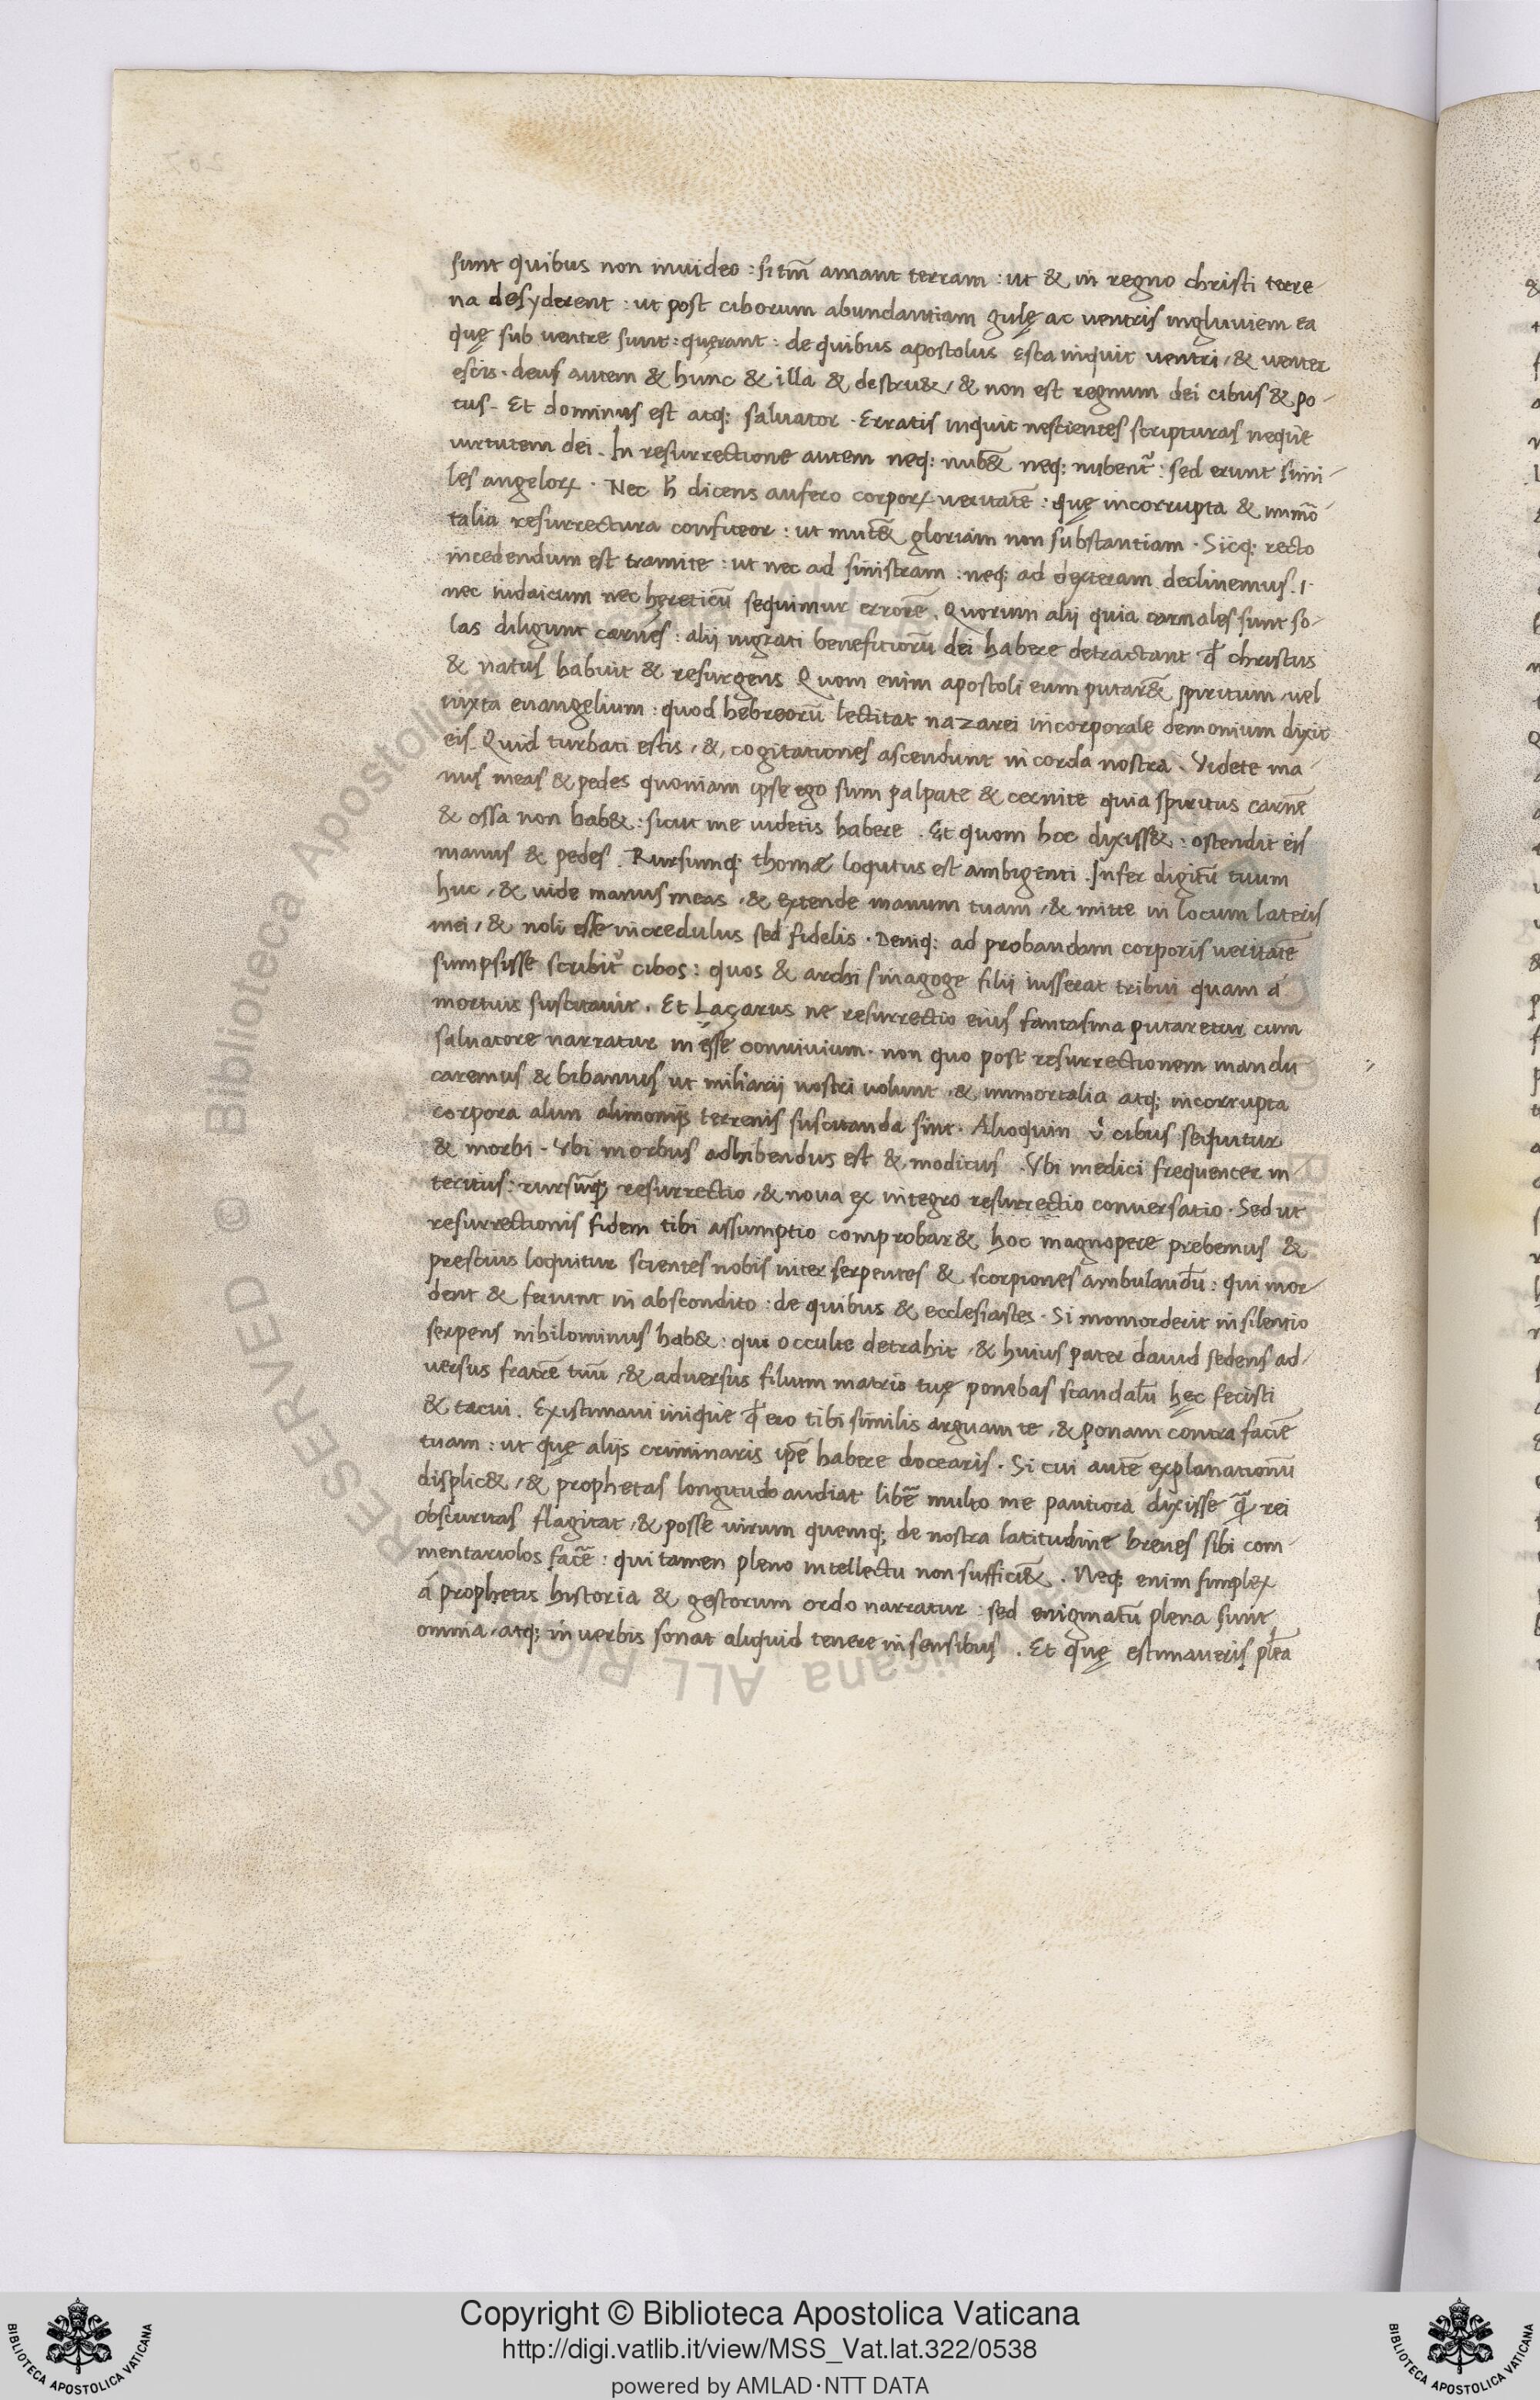 sunt quibus non inuideo : si tm̄ amant terram : ut & in regno christi terre-
na desyderent : ut post ciborum abundantiam gulę ac uentris ingluuiem ea
quę sub uentre sunt : querant : de quibus apostolus esca inquit uentri , & uenter
escis . deus autem & hunc & illa & destru& , & non est regnum dei cibus & po-
tus . Et dominus est atq; saluator . Erratis inquit nescientes scripturas neque
uirtutem dei . In resurrectione autem neq; nub& neq; nubent᷑ : sed erunt simi-
les angeloꝝ . Nec h̄ dicens aufero corpoꝝ ueritatē : quę incorrupta & immō
talia resurrectura confiteor : ut mut& gloriam non substantiam . Sicq; recto
incedendum est tramite : ut nec ad sinistram : neq; ad dexteram declinemus . i .
nec iudaicum nec hereticū sequimur errorē . Quorum alij quia carnales sunt so-
las diligunt carnes : alij ingrati benefitiorū dei habere detractant ꝙ christus
& natus habuit & resurgens Quom enim apostoli eum putar& spiritum uel
iuxta euangelium : quod hebreorū lectitat nazarei incorporale demonium dixit
eis . Quid turbati estis , & cogitationes ascendunt in corda nostra . Videte ma-
nus meas & pedes quoniam ipse ego sum palpate & cernite quia spiritus carnē
& ossa non hab& : sicut me uidetis habere . Et quom hoc dixiss& : ostendit eis
manus & pedes . Rursumq; thomæ loqutus est ambigenti . Infer digitū tuum
huc , & uide manus meas , & extende manum tuam , & mitte in locum lateris
mei , & noli esse incredulus sed fidelis . Deniq; ad probandam corporis ueritatē
sumpsisse scribit᷑ cibos : quos & archi sinagoge filij iusserat tribui quam á
mortuis suscitauit . Et Laçarus ne resurrectio eius fantasma putaretur cum
saluatore narratur in esse conuiuium . non quo post resurrectionem mandu
caremus & bibamus ut miliarij nostri uolunt , & immortalia atq; incorrupta
corpora alun alimonijs terrenis suscitanda sint . Alioquin v̇ cibus sequitur
& morbi . Vbi morbus adhibendus est & modicus . Vbi medici frequenter in-
teritus : rursūq; resurrectio , & noua ex integro resurrectio conuersatio . Sed ut
resurrectionis fidem tibi assumptio comprobar& hoc magnopere prebemus &
prescius loquitur scientes nobis inter serpentes & scorpiones ambulandū : qui mor-
dent & feriunt in abscondito : de quibus & ecclesiastes . Si momorderit in silentio
serpens nihilominus hab& : qui occulte detrahit , & huius pater dauid sedens ad-
uersus fratrē tuū , & aduersus filium matris tuę ponebas scandalū hęc fecisti
& tacui . Existimaui inique ꝙ ero tibi similis arguam te , & ponam contra faciē
tuam : ut quę alijs criminaris ip̄e habere docearis . Si cui autē explanationū
displic& , & prophetas longitudo audiat libē multo me pautiora dixisse q̄ rei
obscuritas flagitat , & posse uirum quemq; de nostra latitudine breues sibi com-
mentariolos facē : qui tamen pleno intellectu non suffici& . Neq; enim simplex
á prophetis historia & gestorum ordo narratur : sed enigmatū plena sunt
omnia , atq; in uerbis sonat aliquid tenere in sensibus . Et quę estimaueris plēa
Copyright © Biblioteca Apostolica Vaticana
http://digi.vatlib.it/view/MSS_Vat.lat.322/0538
powered by AMLAD·NTT DATA